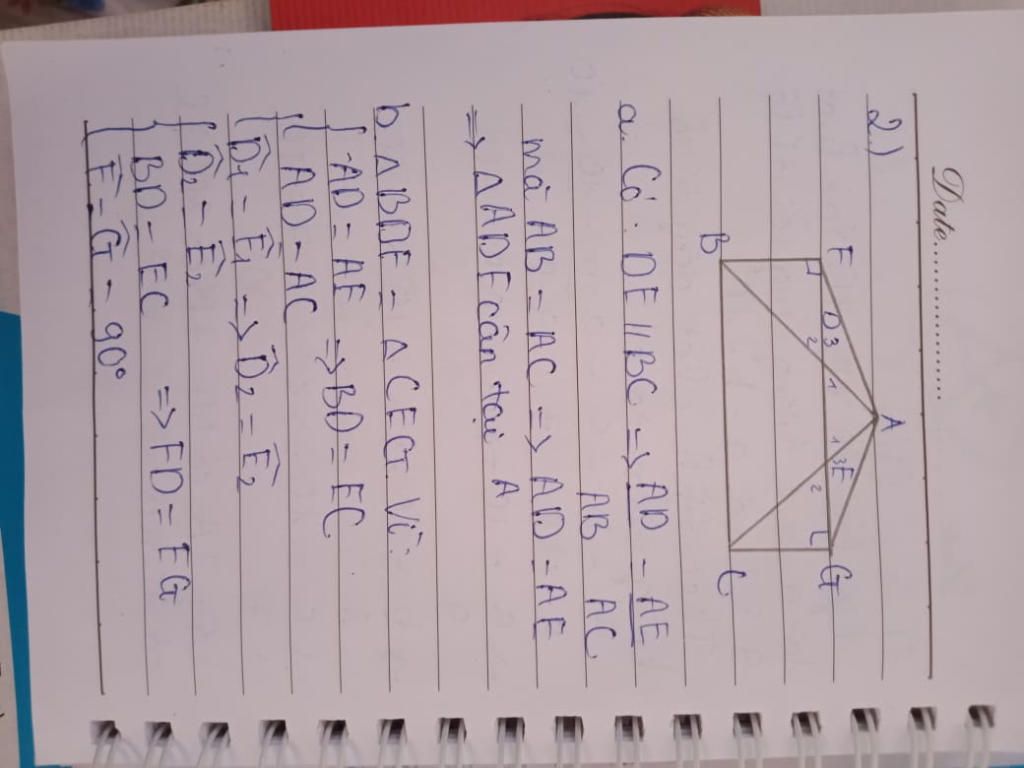 Date..................
2.)
A
F D 3 1 1 3 E G
2 2
B C
a. Có: DE // BC => AD = AE
AB AC
mà AB = AC => AD = AE
=> Δ ADE cân tại A
b Δ BDF = Δ CEG. Vì:
{ AD = AE => BD = EC
{ AD = AC
{ D̂₁ = Ê₁ => D̂₂ = Ê₂
{ D̂₂ = Ê₂
BD = EC => FD = EG
{ F̂ = Ĝ = 90°